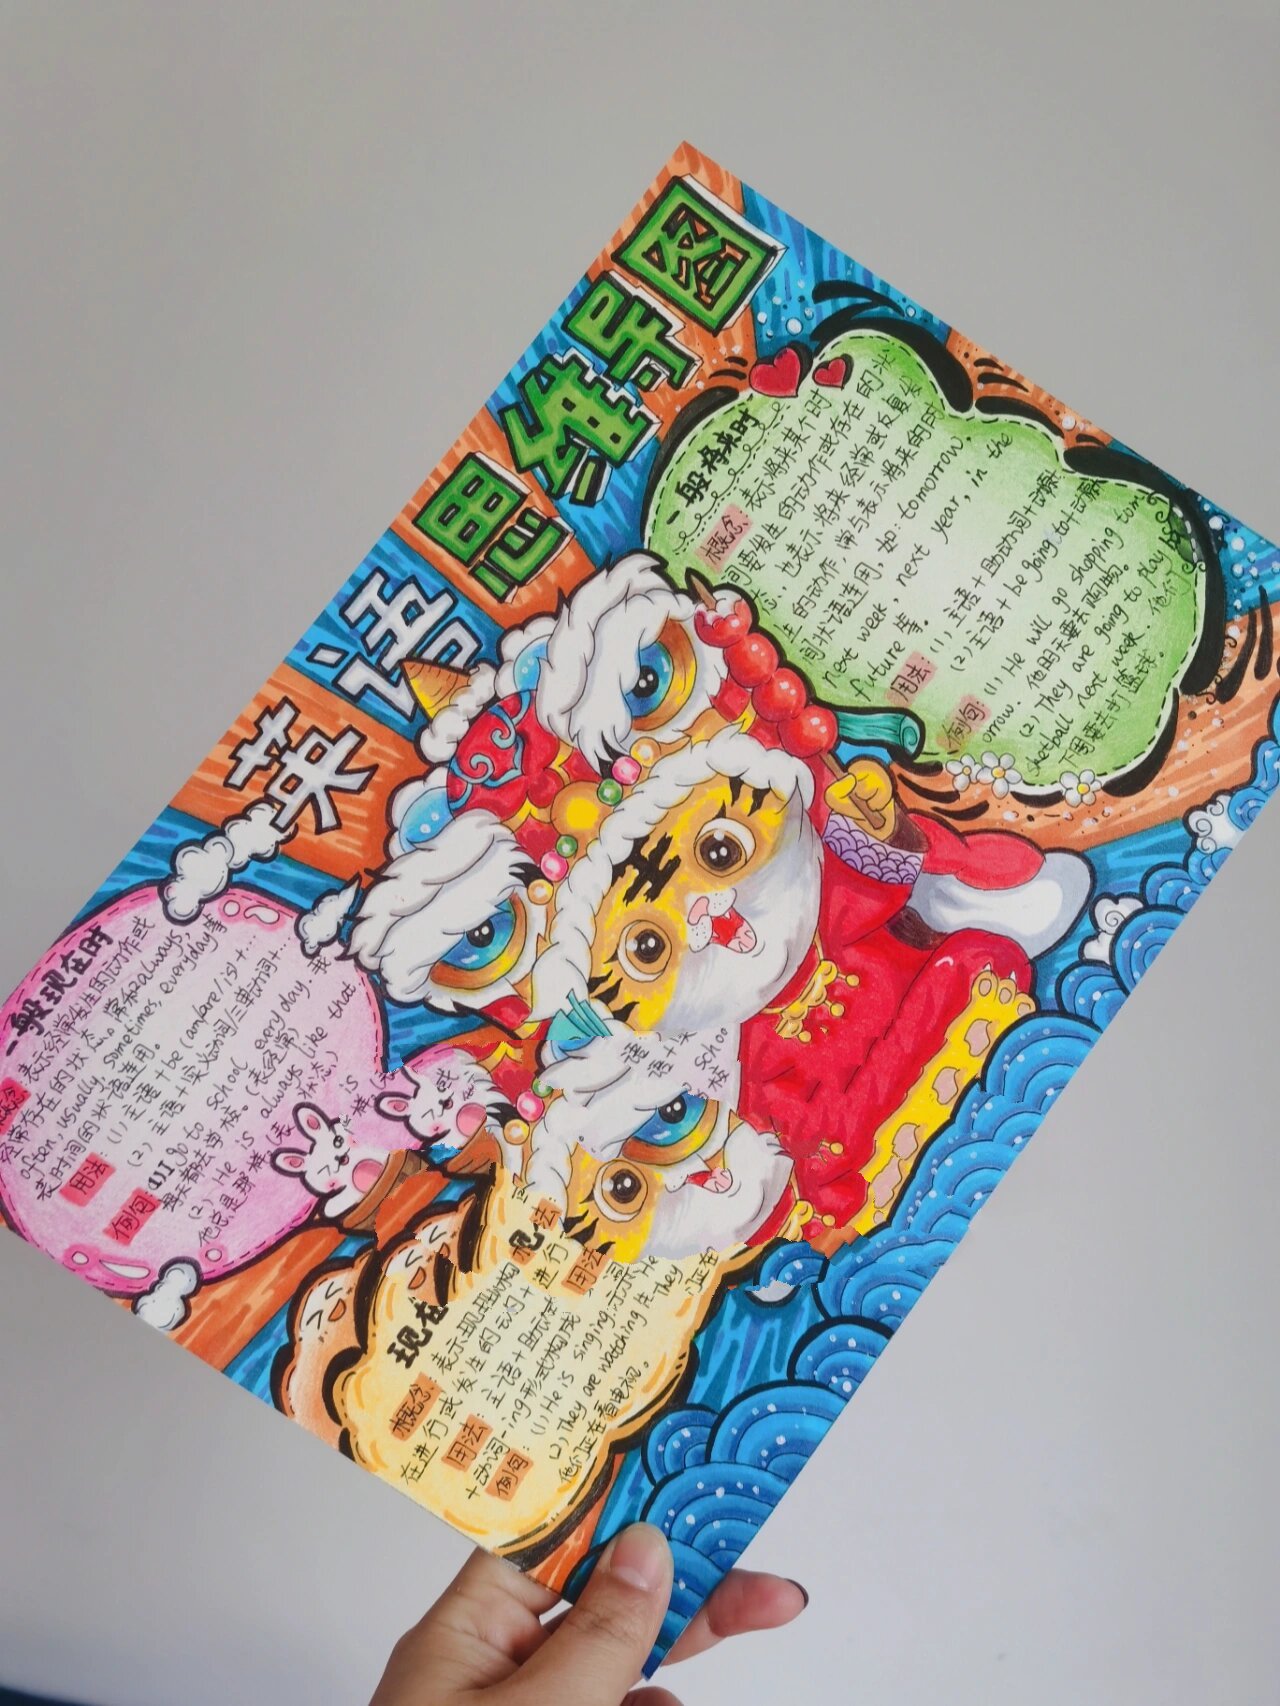 英语思维导图
一般将来时
概念：表示将来某个时
间要发生的动作或存在的状
态，也表示将来经常或反复发
生的动作，常与表示将来的时
间状语连用，如：tomorrow,
next week, next year, in the
future 等。
用法：(1) 主语+助动词+动原
(2) 主语+be going to+动原
例句：(1) He will go shopping tom
orrow. 他明天要去购物。
(2) They are going to play
sketball next week. 他们
下周要去打篮球。
一般现在时
概念：表示经常发生的动作或
经常存在的状态。常和always,
often, usually, sometimes, everyday等
表时间的状语连用。
用法：(1) 主语+be (am/are/is)+...
(2) 主语+实义动词/三单动词+...
例句：(1) I go to school every day. 我
每天都去学校。(表经常)
(2) He is always like that
他总是那样。(表状态)
现在
概念：表示现
在进行或发生的动
用法：主语+助动
+动词-ing形式构成
例句：(1) He is singing.
(2) They are watching
他们正在看电视。
进行
用法
He
They
们正在
语
schoo
校